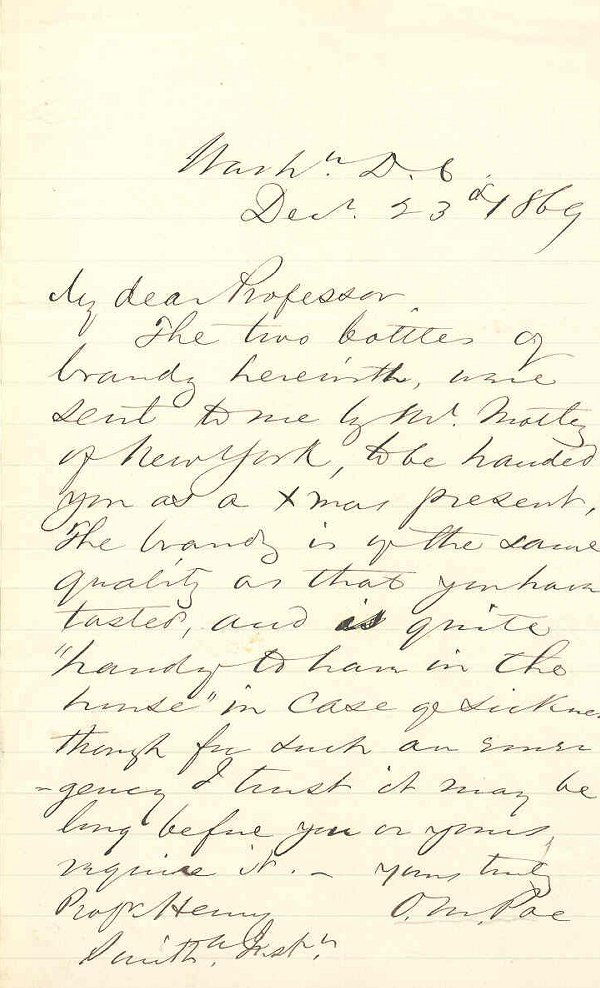 Washn. D. C.
Decr. 23d 1869
My dear Professor
The two bottles of
brandy herewith, were
sent to me by Mr. Motley
of New York, to be handed
you as a Xmas present.
The brandy is of the same
quality as that you have
tasted, and is quite
"handy to have in the
house" in case of sickness
though for such an emer
-gency I trust it may be
long before you or yours
require it. – yours truly
Profr. Henry O. M. Poe
Smithn. Instn.